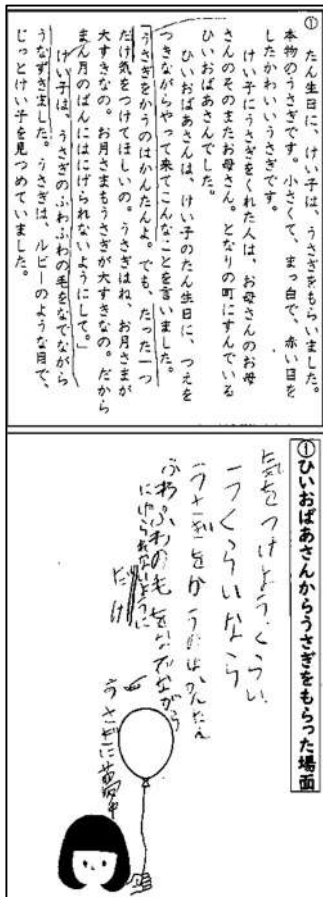 ①
たん生日に、けい子は、うさぎをもらいました。
本物のうさぎです。小さくて、まっ白で、赤い目を
したかわいいうさぎです。
けい子にうさぎをくれた人は、お母さんのお母
さんのそのまたお母さん。となりの町にすんでいる
ひいおばあさんでした。
ひいおばあさんは、けい子のたん生日に、つえを
つきながらやって来てこんなことを言いました。
「うさぎをかうのはかんたんよ。でも、たった一つ
だけ気をつけてほしいの。うさぎはね、お月さまが
大すきなの。お月さまもうさぎが大すきなの。だから
まん月のばんにはにげられないようにして。」
けい子は、うさぎのふわふわの毛をなでながら
うなずきました。うさぎは、ルビーのような目で、
じっとけい子を見つめていました。
①ひいおばあさんからうさぎをもらった場面
気をつけよう、くらい
一つくらいなら
うさぎをかうのはかんたん
ふわふわの毛をなでながら
にげられないように
だけ
うさぎに夢中